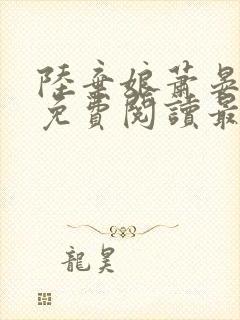 陸棄娘蕭晏
免費閱讀最
龍昊